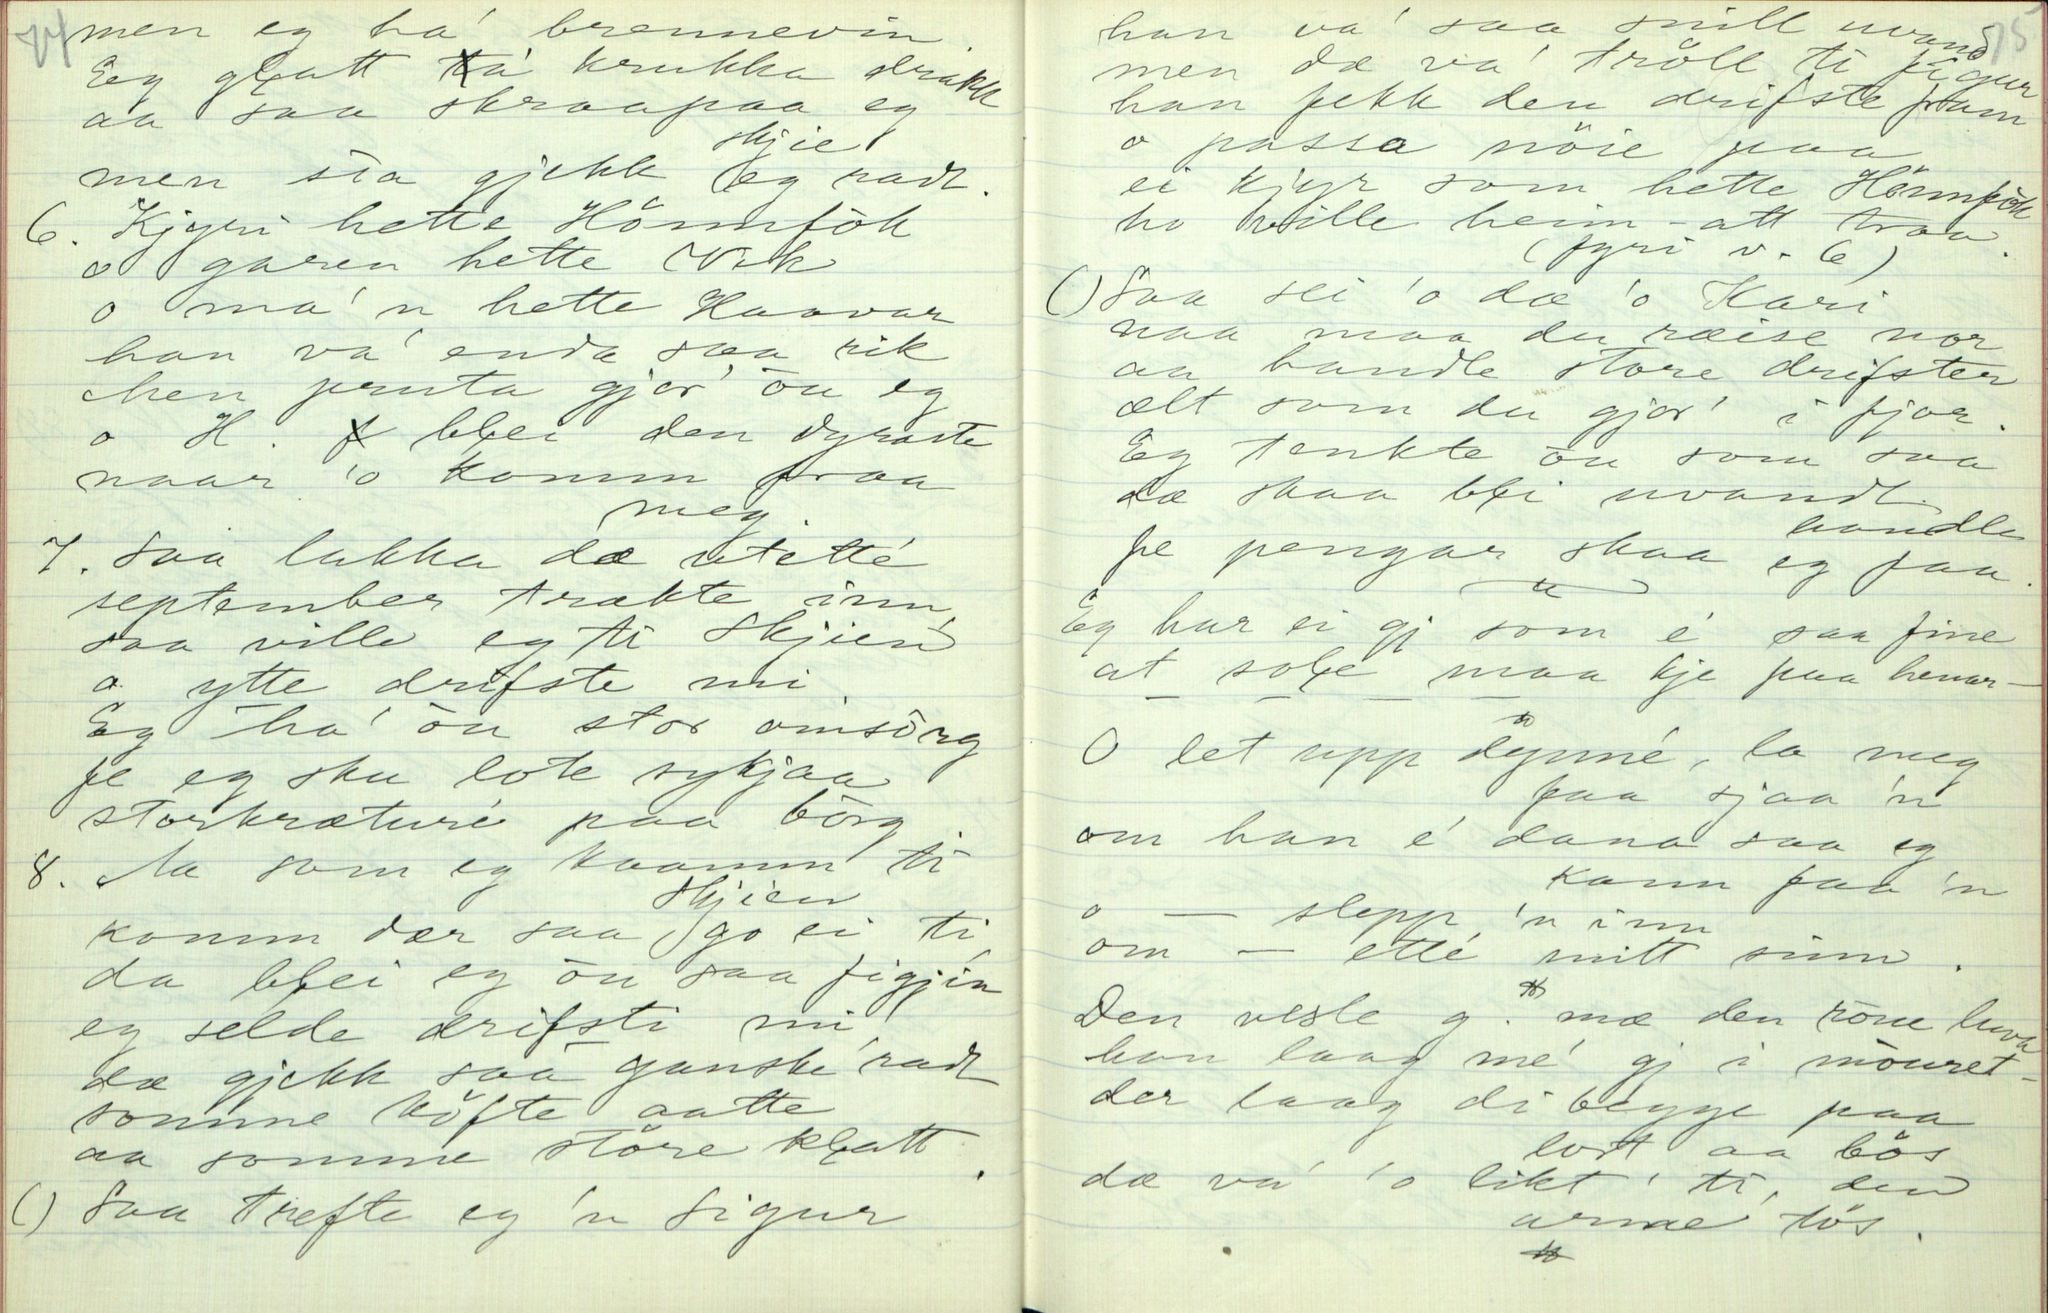 74
men eg ha' brennevin.
Eg glatt tá krukka drakk
aa saa skraapaa eg
skjie
men sia gjekk eg radt.
6. Kjyri hette Hömnfök
o garen hette Vik
o ma'n hette Haavar
han va' enda saa rik
Men pruta gjor' ōu eg
o H. blei den dyraste
naar 'o komm fraa
meg.
7. Saa lakka dæ utetté
september trækte inn,
saa ville eg ti Skjien
o ytte drifste mi.
Eg ha' ōu stor omsörg
fe eg sku lote sykjaa
storkræturé paa börg
8. Na som eg kaamm ti
Skjien
komm dær saa go ei ti
da blei eg ōu saa figjin
eg selde drifsti mi
dæ gjekk saa ganske radt
somme köfte aatte
aa somme störe klatt.
() Saa trefte eg 'n Sigur
75
han va' saa snill uvand
men dæ va' tröll ti figur
han fekk den drifste fram
o passa nöie paa
ei kjyr som hette Hömnfök
ho ville heim-att traa.
(fyri v. 6)
() Saa sei 'o dæ 'o Kari
naa maa du ræise nor
aa handle store drifster
ælt som du gjor' i fjor.
Eg tenkte ōu som saa
dæ skaa blei uvandt
handle
fe pengar skaa eg faa.
Eg har ei gj som é saa fine
at sole maa kje paa henar –
O let upp dynné, la meg
faa sjaa 'n
om han é dana saa eg
kann faa 'n
o — slepp 'n inn
om — etté mitt sinn.
Den vesle g. mæ den röue huva
han laag mé gj i möuret –
der laag di begge paa
lort aa bös
dæ va' 'o likt' ti, den
arme tös.